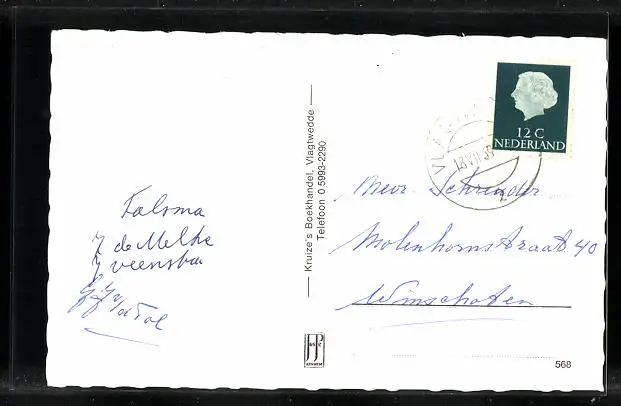 12 C
NEDERLAND
Kruize's Boekhandel, Vlagtwedde
Telefoon 0 5993-2290
Mevr. Schreuder
Molenhornstraat. 40
Winschoten
Talsma
J de Melke
J Veenstra
568